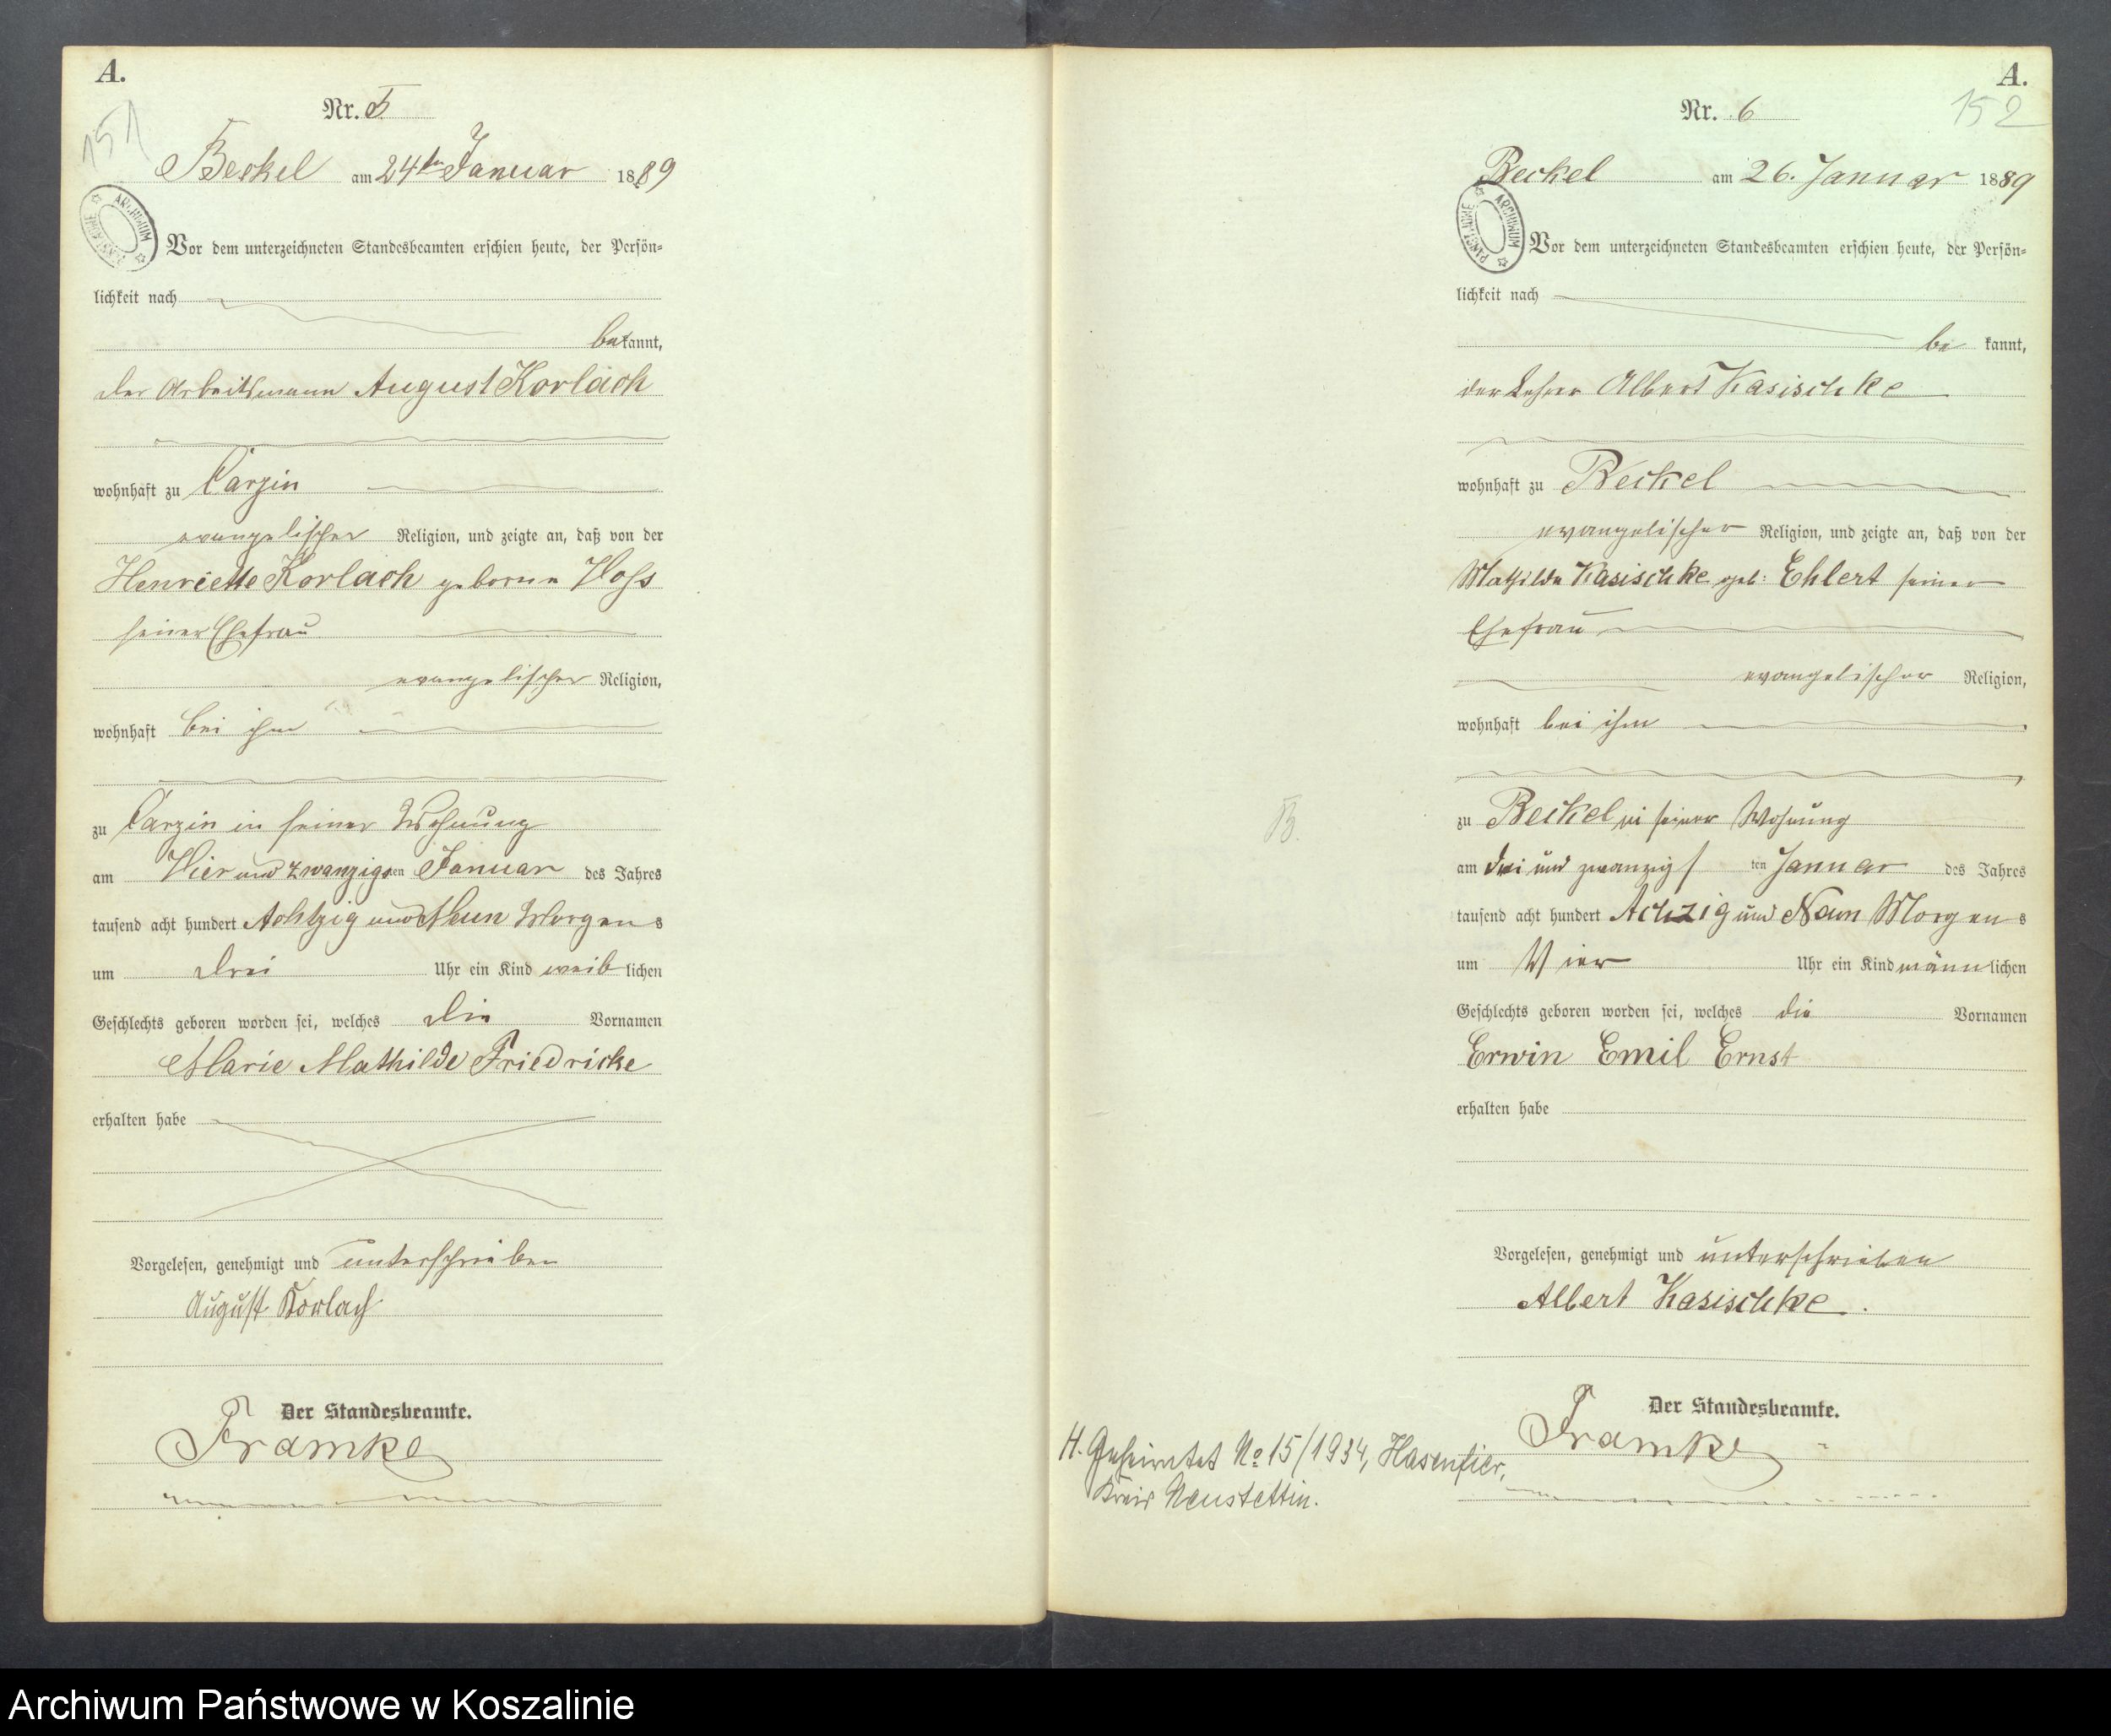 A.
151
Nr. 5
Beckel am 24ten Januar 1889
ARCHIWUM PAŃSTWOWE
Vor dem unterzeichneten Standesbeamten erschien heute, der Persön-
lichkeit nach
bekannt,
der Arbeitsmann August Korlach
wohnhaft zu Carzin
evangelischer Religion, und zeigte an, daß von der
Henriette Korlach geborne Voss
seiner Ehefrau
evangelischer Religion,
wohnhaft bei ihm
zu Carzin in seiner Wohnung
am Vier und zwanzigsten Januar des Jahres
tausend acht hundert Achtzig und Neun Morgens
um drei Uhr ein Kind weiblichen
Geschlechts geboren worden sei, welches die Vornamen
Marie Mathilde Friedricke
erhalten habe
Vorgelesen, genehmigt und unterschrieben
August Korlach
Der Standesbeamte.
Framke
A.
152
Nr. 6
Beckel am 26. Januar 1889
ARCHIWUM PAŃSTWOWE
Vor dem unterzeichneten Standesbeamten erschien heute, der Persön-
lichkeit nach
be kannt,
der Lehrer Albert Kasischke
wohnhaft zu Beckel
evangelischer Religion, und zeigte an, daß von der
Mathilde Kasischke geb: Ehlert seiner
Ehefrau
evangelischer Religion,
wohnhaft bei ihm
zu Beckel in seiner Wohnung
am drei und zwanzigsten Januar des Jahres
tausend acht hundert Achzig und Neun Morgens
um Vier Uhr ein Kind männlichen
Geschlechts geboren worden sei, welches die Vornamen
Erwin Emil Ernst
erhalten habe
Vorgelesen, genehmigt und unterschrieben
Albert Kasischke.
Der Standesbeamte.
Framke
B.
H. Geheiratet No 15/1934, Hasenfier,
Kreis Neustettin.
Archiwum Państwowe w Koszalinie